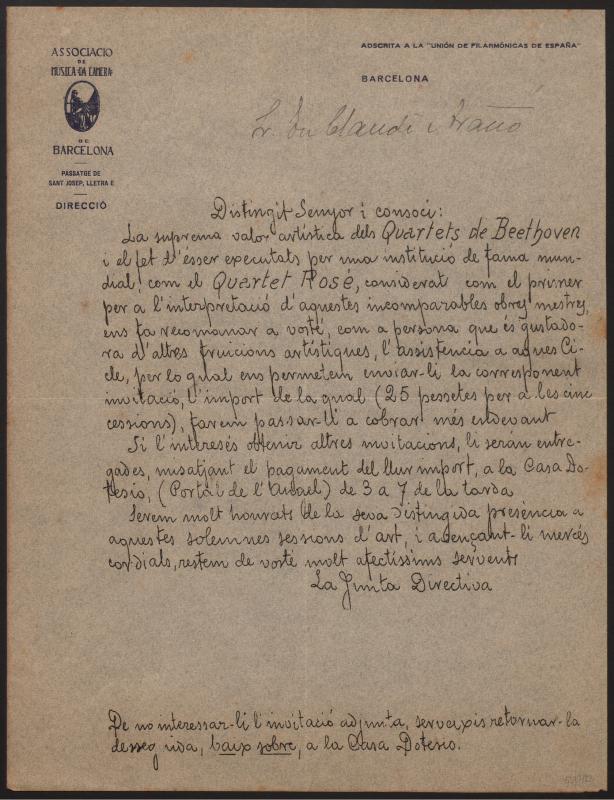 ASSOCIACIO
DE
MUSICA "DA CAMERA"
DE
BARCELONA
PASSATGE DE
SANT JOSEP, LLETRA E
DIRECCIÓ
ADSCRITA A LA "UNIÓN DE FILARMÓNICAS DE ESPAÑA"
BARCELONA
Sr. En Claudi
Distingit Senyor i consoci:
La suprema valor artística dels Quartets de Beethoven
i el fet d'ésser executats per una institució de fama mun-
dial com el Quartet Rosé, considerat com el primer
per a l'interpretació d'aquestes incomparables obres mestres,
ens fa recomanar a vosté, com a persona que és gustado-
ra d'altres fruicions artístiques, l'assistencia a aques Ci-
cle, per lo qual ens permetem enviar-li la corresponent
invitació, l'import de la qual (25 pessetes per a les cinc
cessions), farem passar-li a cobrar més endevant
Si l'interesés obtenir altres invitacions, li seràn entre-
gades, mitsatjant el pagament del llur import, a la Casa Do-
tesio, (Portal de l'Angel) de 3 a 7 de la tarda
Serem molt honrats de la seva distingida presencia a
aquestes solemnes sessions d'art, i avençant-li mercés
cordials, restem de vosté molt afectíssims servents
La Junta Directiva
De no interessar-li l'invitació adjunta, serveixis retornar-la
desseguida, baix sobre, a la Casa Dotesio.